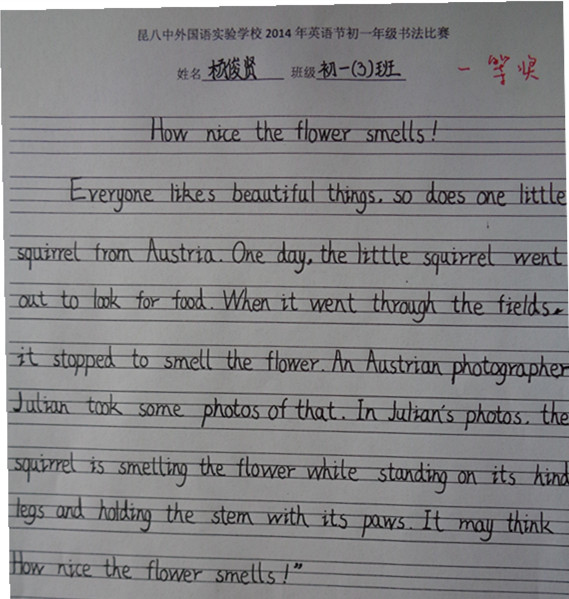 昆八中外国语实验学校 2014 年英语节初一年级书法比赛
姓名 杨俊贤 班级 初一(3)班 一等奖
How nice the flower smells!
Everyone likes beautiful things, so does one little
squirrel from Austria. One day, the little squirrel went
out to look for food. When it went through the fields,
it stopped to smell the flower. An Austrian photographer
Julian took some photos of that. In Julian's photos, the
squirrel is smelling the flower while standing on its hind
legs and holding the stem with its paws. It may think
How nice the flower smells!"